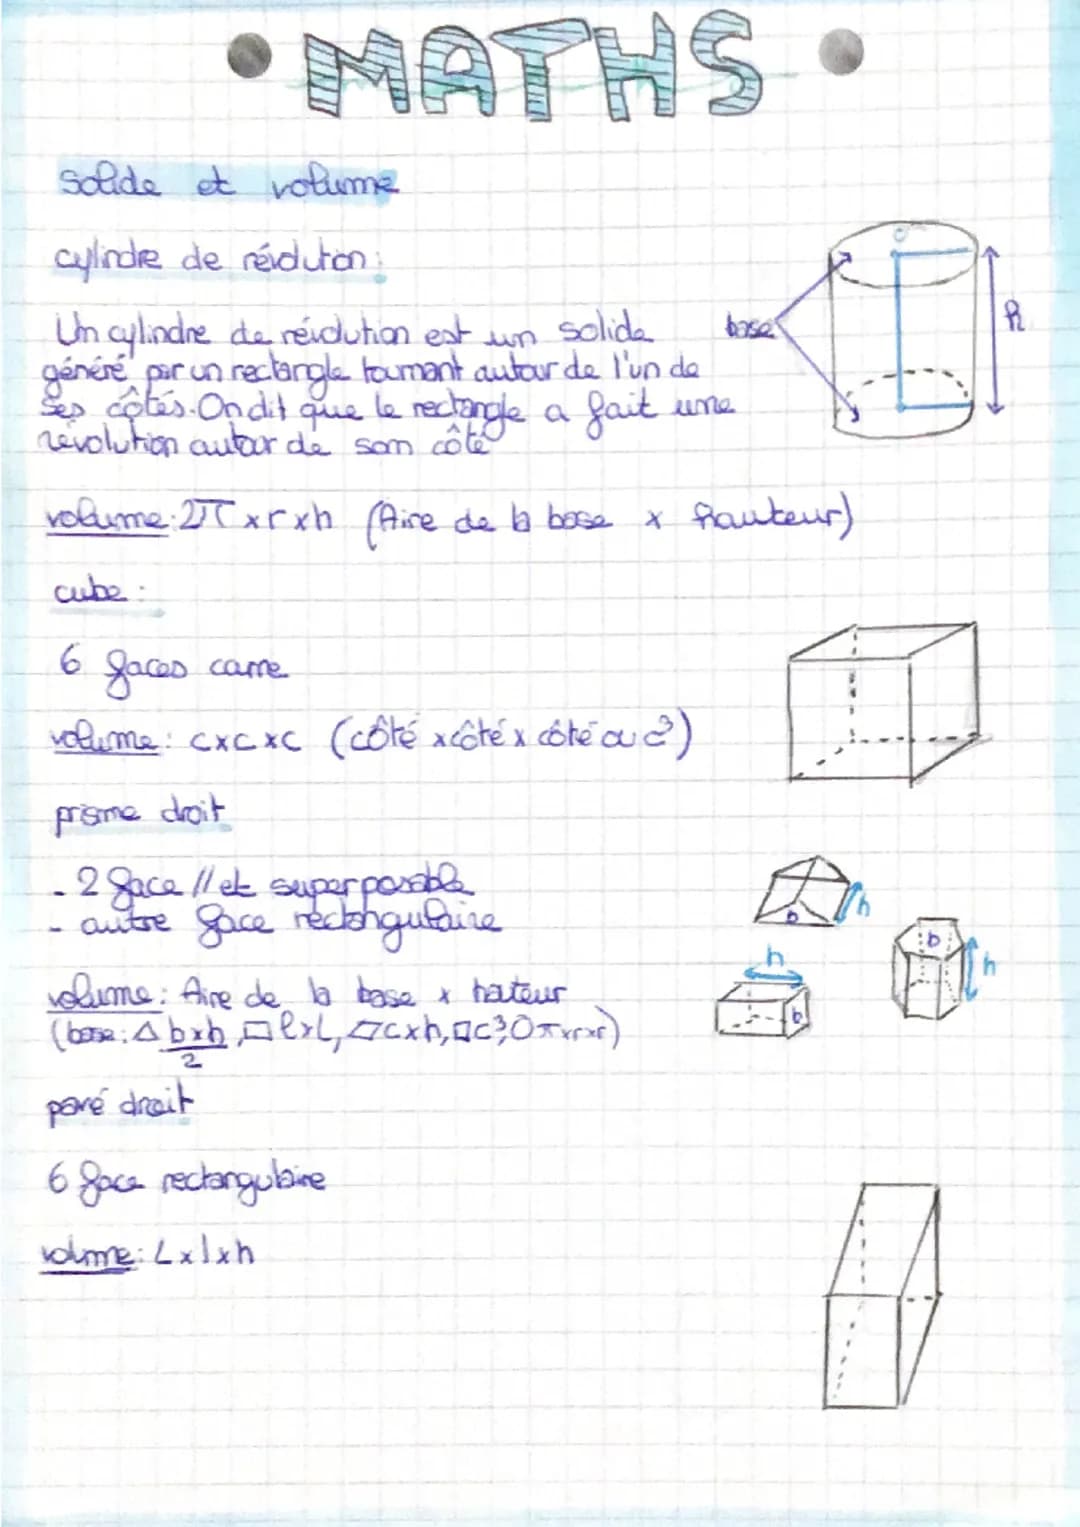 MATHS
solide et volume
cylindre de révoluton :
Un cylindre de révolution est un solide
généré par un rectangle tournant autour de l'un de
ses côtés. On dit que le rectangle a fait une
révolution autour de som côté
base
h
volume : 2π x r x h (Aire de la base x hauteur)
cube :
6 faces carre
volume : c x c x c (côté x côté x côté ou c³)
prisme droit
- 2 face // et superposable
- autre face rectangulaire
b
h
b
h
h
b
volume : Aire de la base x hateur
(base : △ b x h, ▭ l x L, ▱ c x h, □ c², O π x r x r)
2
pavé droit
6 face rectangulaire
volume : L x l x h